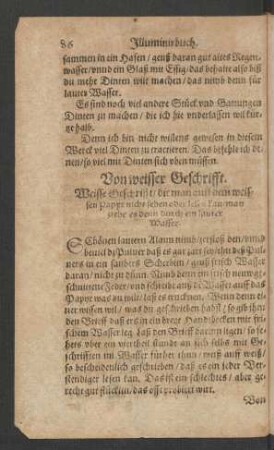 86 Illuminirbuch.
sammen in ein Hafen / geuß daran gut altes Regen-
wasser / vnnd ein Glaß mit Essig / das behalte also biß
du mehr Dinten wilt machen / das nimb denn für
lauter Wasser.
Es sind noch viel andere Stück vnd Gattungen
Dinten zu machen / die ich hie vnderlassen wil kür-
tze halb.
Denn ich bin nicht willens gewesen in diesem
Werck viel Dinten zu tractieren. Das befehle ich de-
nen / so viel mit Dinten sich üben müssen.
Von weisser Geschrifft.
Weisse Geschrifft / die man auff dem weis-
sen Papyr nicht sehen oder lesen kan / man
ziehe es denn durch ein lauter
Wasser.
SChönen lautern Alaun nimb / zerstoß den / vnnd
beutel dz Pulver daß es gut zart sey / thu deß Pul-
vers in ein saubers Scherblin / geuß frisch Wasser
daran / nicht zu dünn. Nimb denn ein frisch neuw ge-
schnittene Feder / vnd schreibe auff das
Papyr was du wilt / laß es trucknen. Wenn denn einer
wissen wil / was du geschrieben habst / so gib ihm
den Brieff daß ers in ein breit Handbecken mit fri-
schem Wasser leg / laß den Brieff darinn ligen / so
sehet vber ein viertheil stunde an sich selbs mit Ge-
schrifften im Wasser / weiß auff weiß /
so bescheidenlich geschrieben / daß es ein jeder Ver-
stendiger lesen kan. Das ist ein schlechtes / aber ge-
recht gut stücklin / das offt probiert wirt.
Von